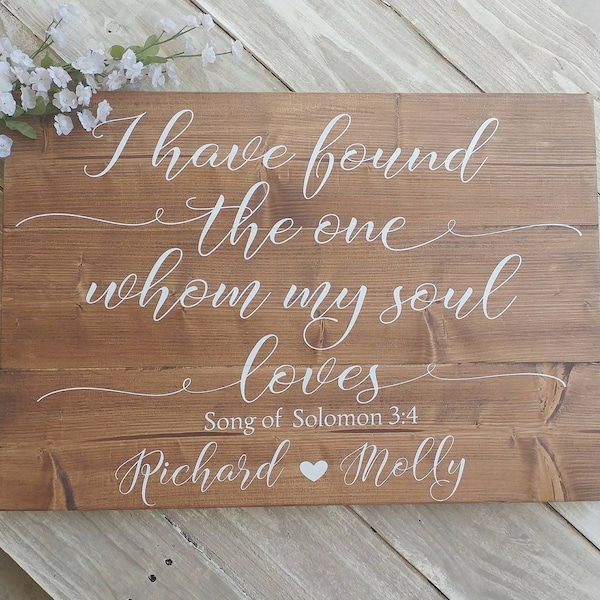 I have found
the one
whom my soul
loves
Song of Solomon 3:4
Richard ♥ Molly